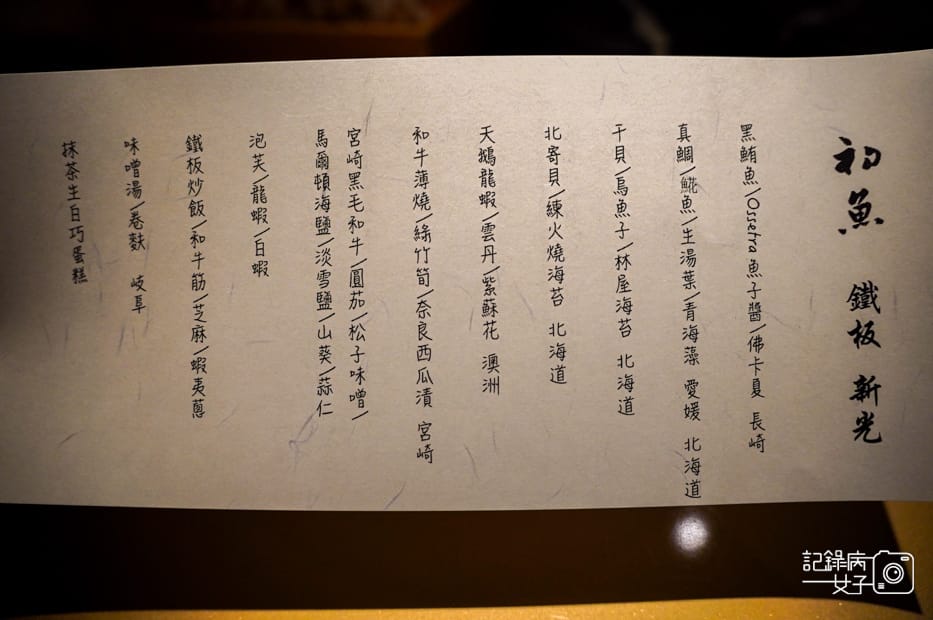 初魚 鐵板 新光
黑鮪魚/Ossetra魚子醬/佛卡夏 長崎
真鯛/鯤魚/生湯葉/青海藻 愛媛 北海道
干貝/烏魚子/林屋海苔 北海道
北寄貝/練火燒海苔 北海道
天鵝龍蝦/雲丹/紫蘇花 澳洲
和牛薄燒/綠竹筍/奈良西瓜漬 宮崎
宮崎黑毛和牛/圓茄/松子味噌/
馬爾頓海鹽/淡雪鹽/山葵/蒜仁
泡芙/龍蝦/白蝦
鐵板炒飯/和牛筋/芝麻/蝦夷蔥
味噌湯/卷麩 岐阜
抹茶生白巧蛋糕
記錄病女子